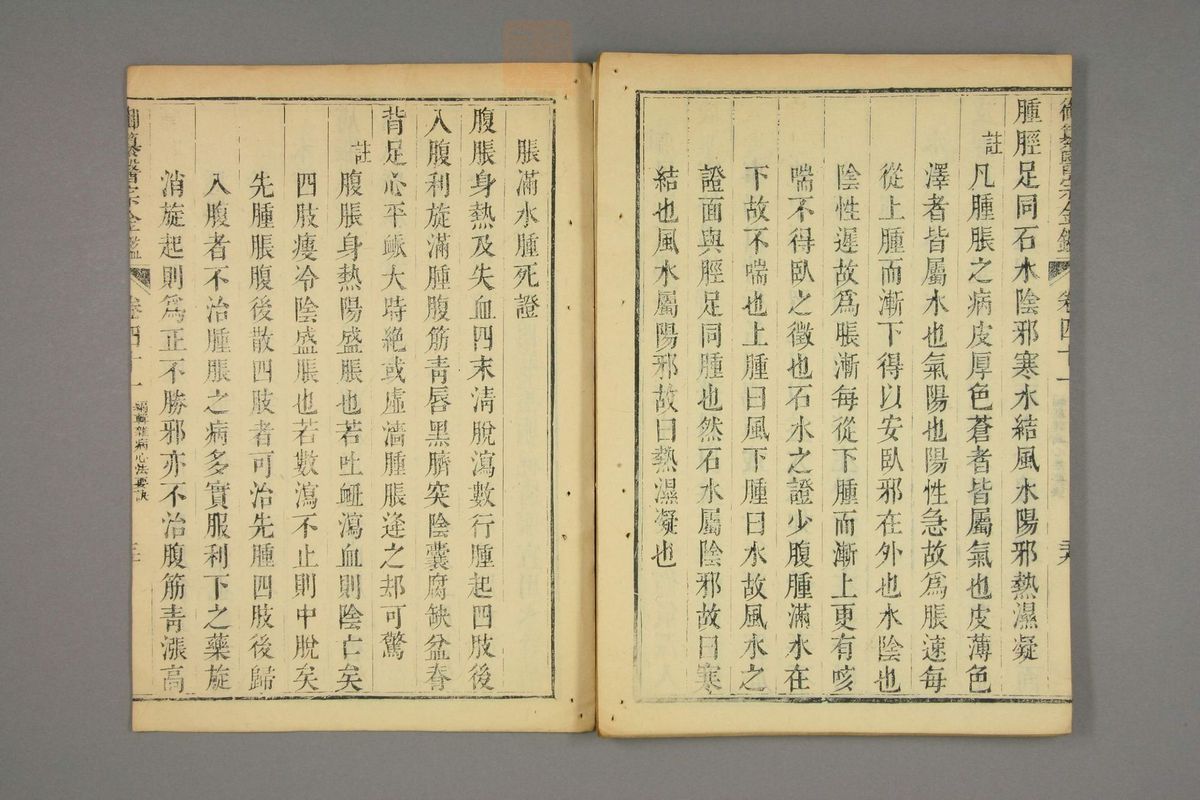 御纂醫宗金鑑 卷四十一
腫脛足同石水陰邪寒水結風水陽邪熱濕凝
註
凡腫脹之病皮厚色蒼者皆屬氣也皮薄色
澤者皆屬水也氣陽也陽性急故為脹速每
從上腫而漸下得以安臥邪在外也水陰也
陰性遲故為脹漸每從下腫而漸上更有咳
喘不得臥之徵也石水之證少腹腫滿水在
下故不喘也上腫曰風下腫曰水故風水之
證面與脛足同腫也然石水屬陰邪故曰寒
結也風水屬陽邪故曰熱濕凝也
脹滿水腫死證
腹脹身熱及失血四末清脫瀉數行腫起四肢後
入腹利旋滿腫腹筋青唇黑臍突陰囊腐缺盆脊
背足心平蹶大時絕或虛濇腫脹逢之却可驚
註
腹脹身熱陽盛脹也若吐衄瀉血則陰亡矣
四肢瘦冷陰盛脹也若數瀉不止則中脫矣
先腫脹腹後散四肢者可治先腫四肢後歸
入腹者不治腫脹之病多實服利下之藥旋
消旋起則為正不勝邪亦不治腹筋青漲高
御纂醫宗金鑑 卷四十一 編輯雜病心法要訣